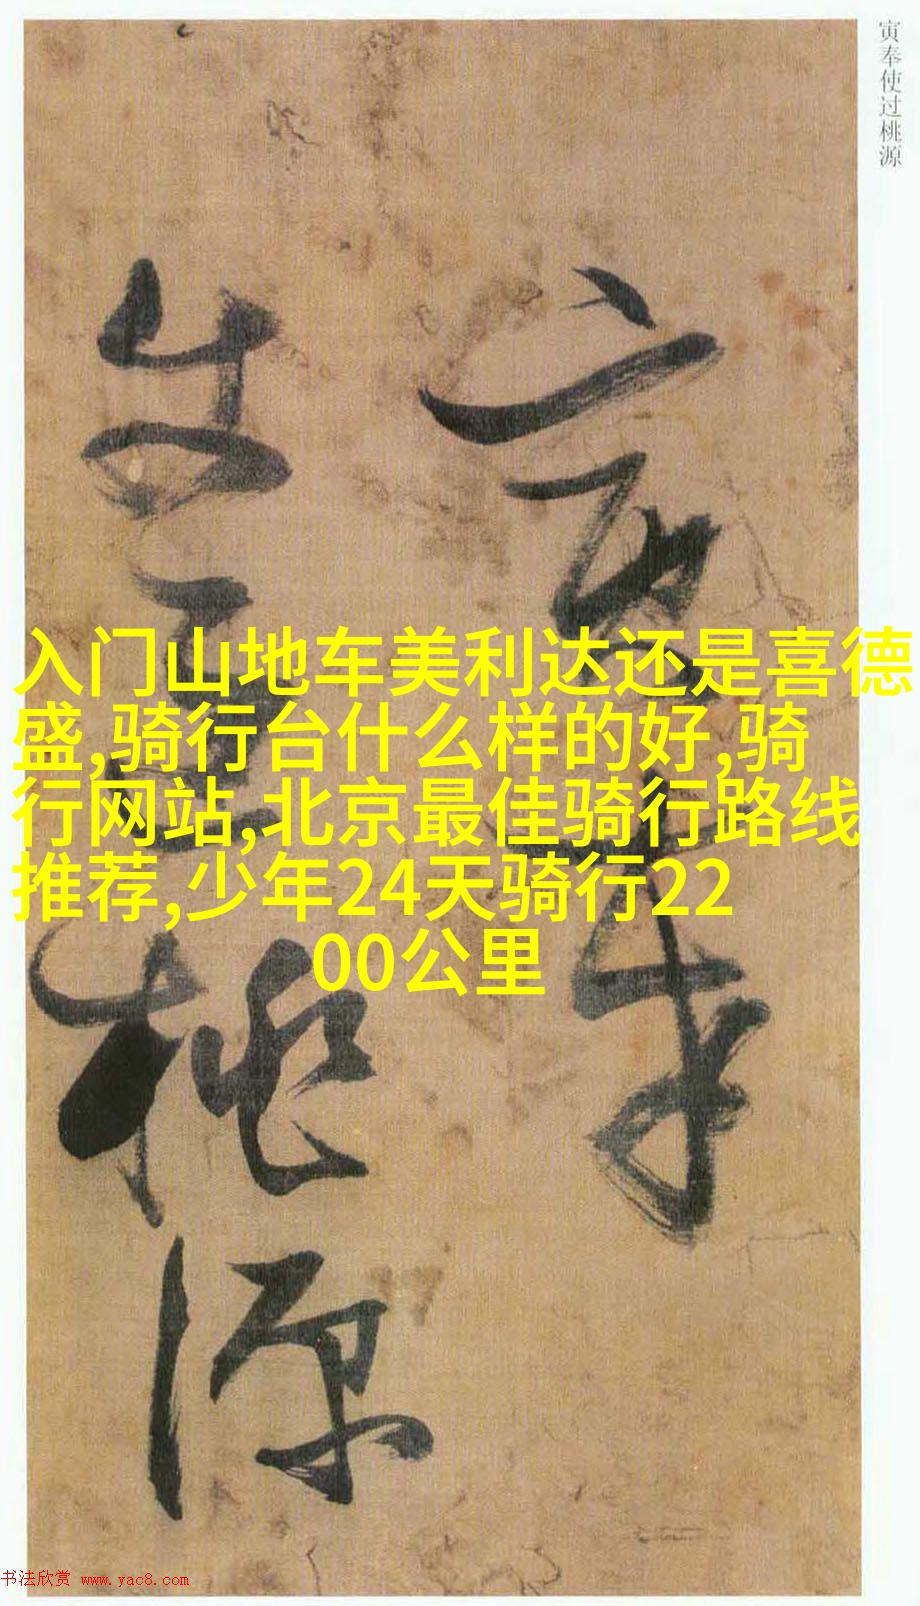 寅奉使过桃源
寅奉
使过桃源
入门山地车美利达还是喜德
盛,骑行台什么样的好,骑
行网站,北京最佳骑行路线
推荐,少年24天骑行22
00公里
书法欣赏 www.yac8.com